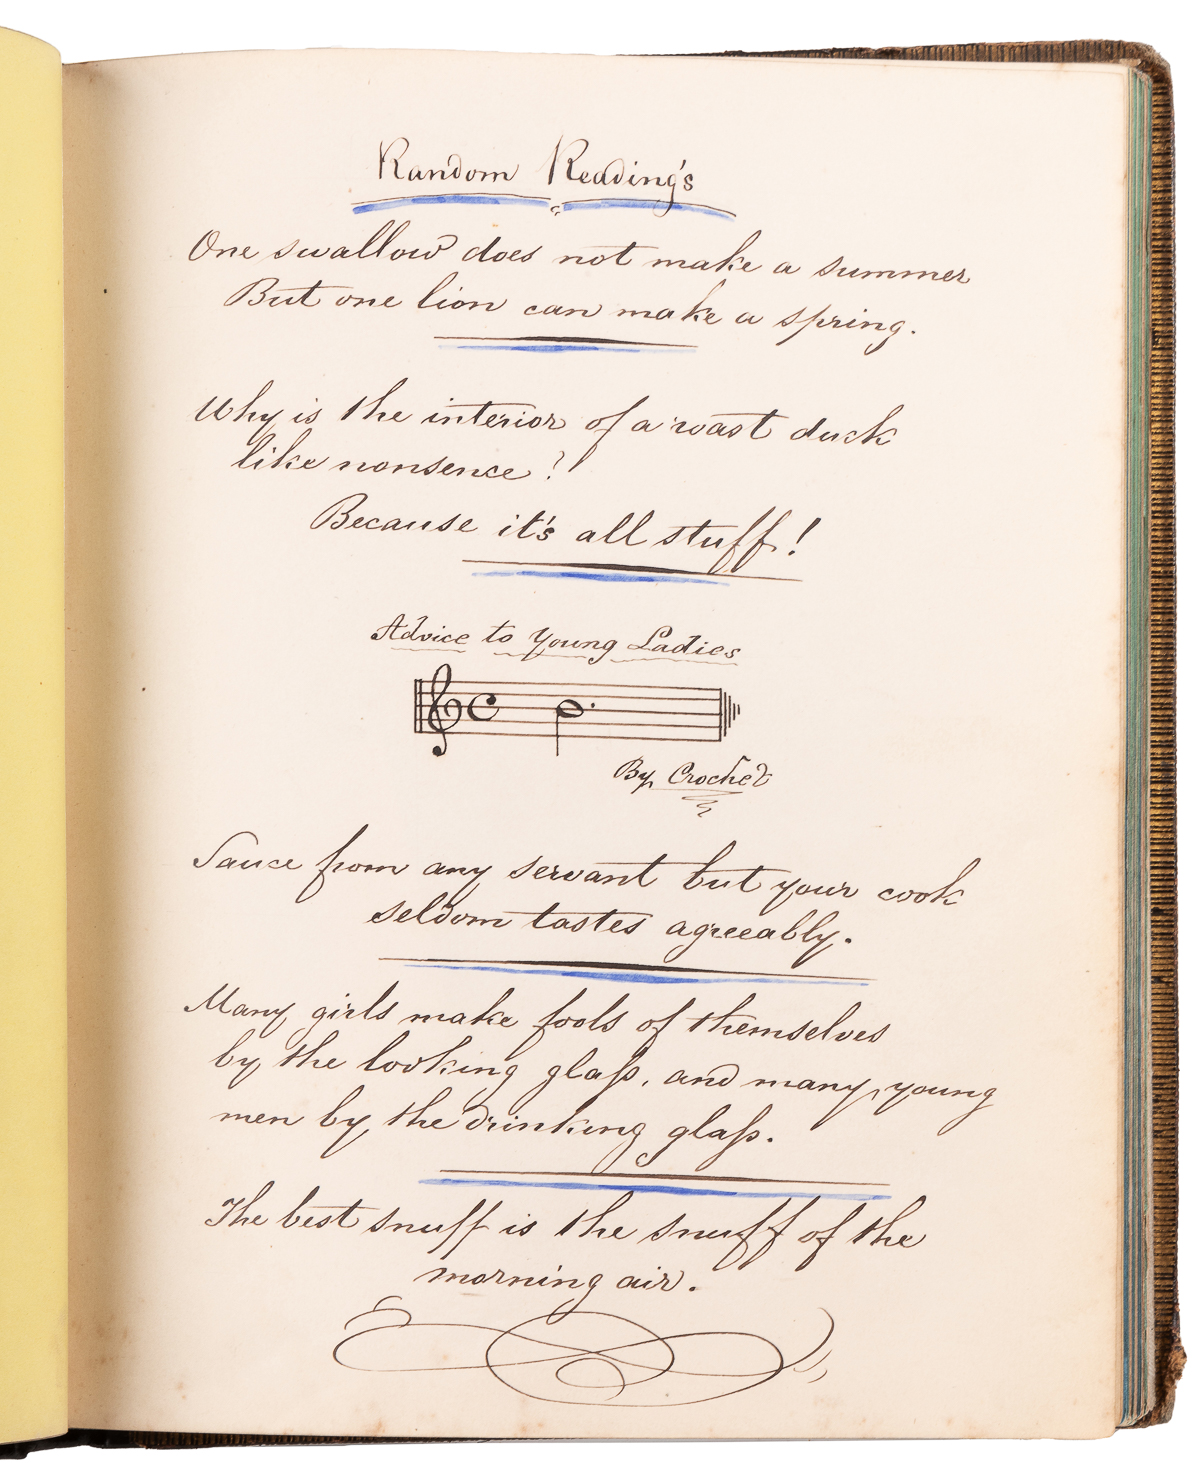 Random Reading's
One swallow does not make a summer
But one lion can make a spring.
Why is the interior of a roast duck
like nonsence?
Because it's all stuff!
Advice to Young Ladies
By Crochet
Sauce from any servant but your cook
seldom tastes agreeably.
Many girls make fools of themselves
by the looking glaſs, and many young
men by the drinking glaſs.
The best snuff is the snuff of the
morning air.